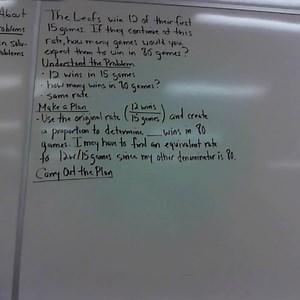 About
Problems
en solv-
roblems
The Leafs win 12 of their first
15 games. If they continue at this
rate, how many games would you
expect them to win in 80 games?
Understand the Problem
- 12 wins in 15 games
- how many wins in 80 games?
- same rate
Make a Plan
- Use the original rate (12 wins / 15 games) and create
a proportion to determine ___ wins in 80
games. I may have to find an equivalent rate
to 12w/15games since my other denominator is 80.
Carry Out the Plan